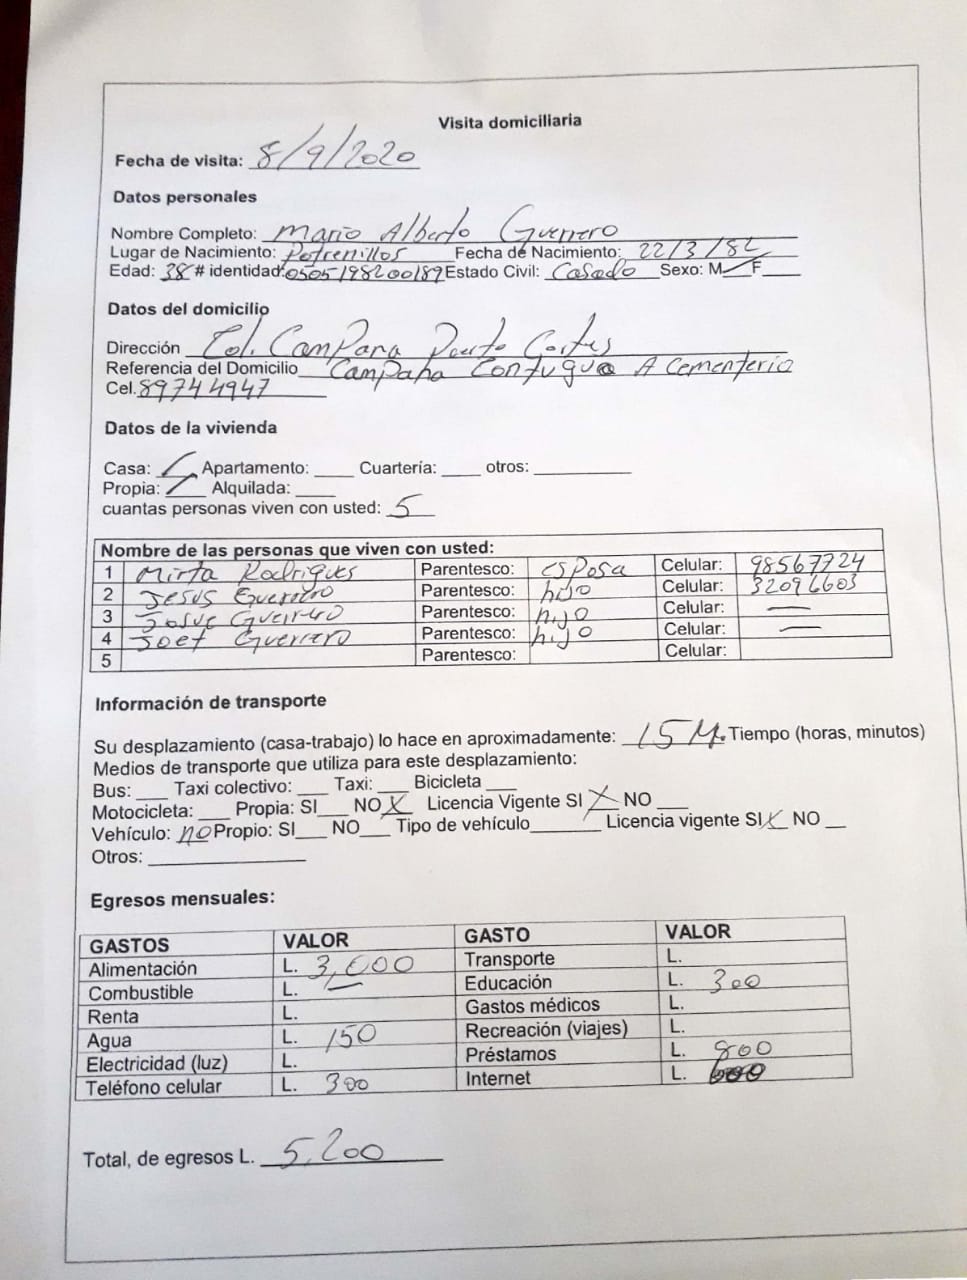 Visita domiciliaria
Fecha de visita: 8/9/2020
Datos personales
Nombre Completo: Mario Alberto Guerrero
Lugar de Nacimiento: Potrerillos Fecha de Nacimiento: 22/3/82
Edad: 38 # identidad: 0505198200189 Estado Civil: Casado Sexo: M ✓ F___
Datos del domicilio
Dirección Col. Campana Puerto Cortes
Referencia del Domicilio Campana Contugua A Cementerio
Cel. 89744947
Datos de la vivienda
Casa: ✓ Apartamento: ____ Cuartería: ____ otros: __________
Propia: ✓ Alquilada: ____
cuantas personas viven con usted: 5
Nombre de las personas que viven con usted:
1 Mirta Rodrigues Parentesco: esposa Celular: 98567724
2 Jesus Guerrero Parentesco: hijo Celular: 32096603
3 Josue Guerrero Parentesco: hijo Celular: —
4 Joet Guerrero Parentesco: hijo Celular: —
5 Parentesco: Celular:
Información de transporte
Su desplazamiento (casa-trabajo) lo hace en aproximadamente: 15 M. Tiempo (horas, minutos)
Medios de transporte que utiliza para este desplazamiento:
Bus: ___ Taxi colectivo: ___ Taxi: ___ Bicicleta ___
Motocicleta: ___ Propia: SI___ NO X Licencia Vigente SI X NO ___
Vehículo: no Propio: SI___ NO___ Tipo de vehículo_______ Licencia vigente SI X NO __
Otros: ________________
Egresos mensuales:
GASTOS VALOR GASTO VALOR
Alimentación L. 3,000 Transporte L.
Combustible L. — Educación L. 300
Renta L. Gastos médicos L.
Agua L. 150 Recreación (viajes) L.
Electricidad (luz) L. Préstamos L. 800
Teléfono celular L. 300 Internet L.
Total, de egresos L. 5,200